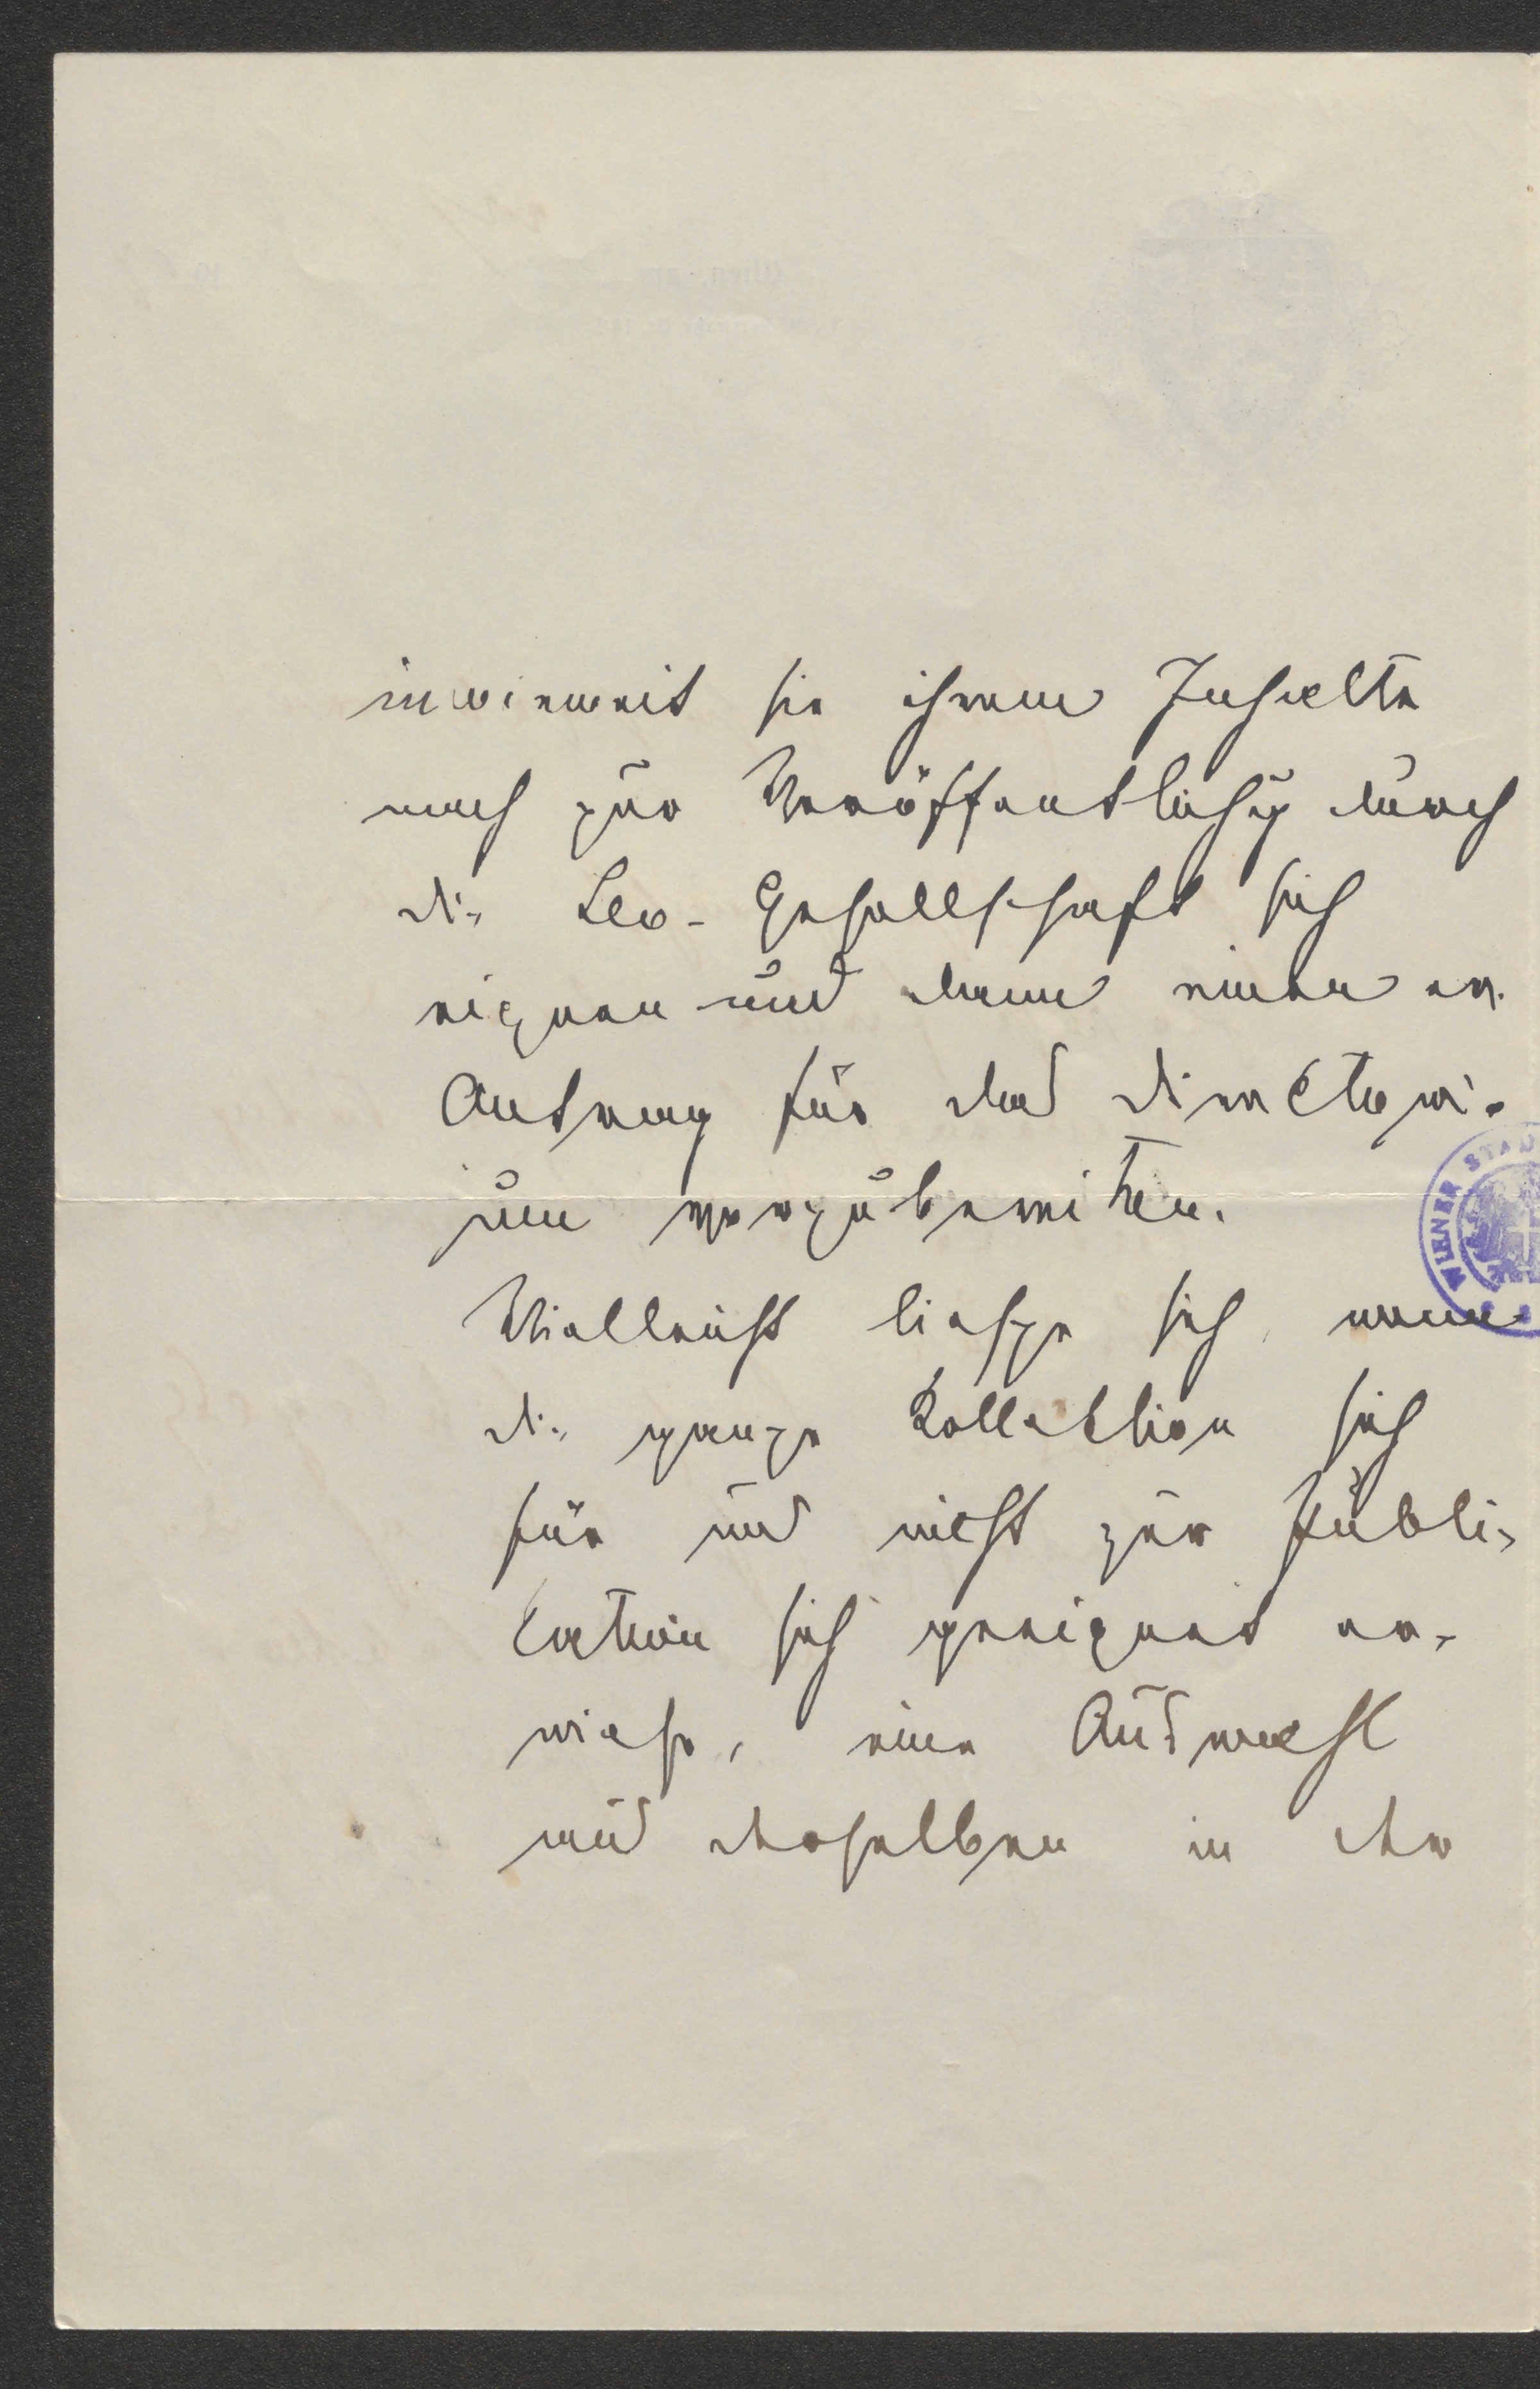 inwieweit sie ihrem Inhalte
nach zur Veröffentlichg durch
die Leo-Gesellschaft sich
eignen und dann einen
Antrag für das Directori-
um vorzubereiten.
Vielleicht liesze sich, wenn
die ganze Kollektion sich
für uns nicht zur Publi-
cation sich geeignet er-
wiese, eine Auswahl
aus derselben in der
WIENER STAD